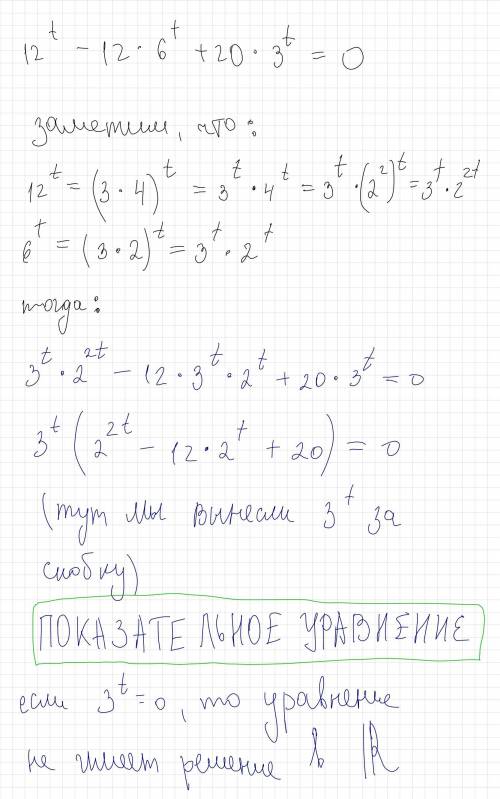 12^t - 12 · 6^t + 20 · 3^t = 0
заметим, что:
12^t = (3 · 4)^t = 3^t · 4^t = 3^t · (2^2)^t = 3^t · 2^{2t}
6^t = (3 · 2)^t = 3^t · 2^t
тогда:
3^t · 2^{2t} - 12 · 3^t · 2^t + 20 · 3^t = 0
3^t (2^{2t} - 12 · 2^t + 20) = 0
(тут мы вынесли 3^t за
скобку)
ПОКАЗАТЕЛЬНОЕ УРАВНЕНИЕ
если 3^t = 0, то уравнение
не имеет решение в ℝ